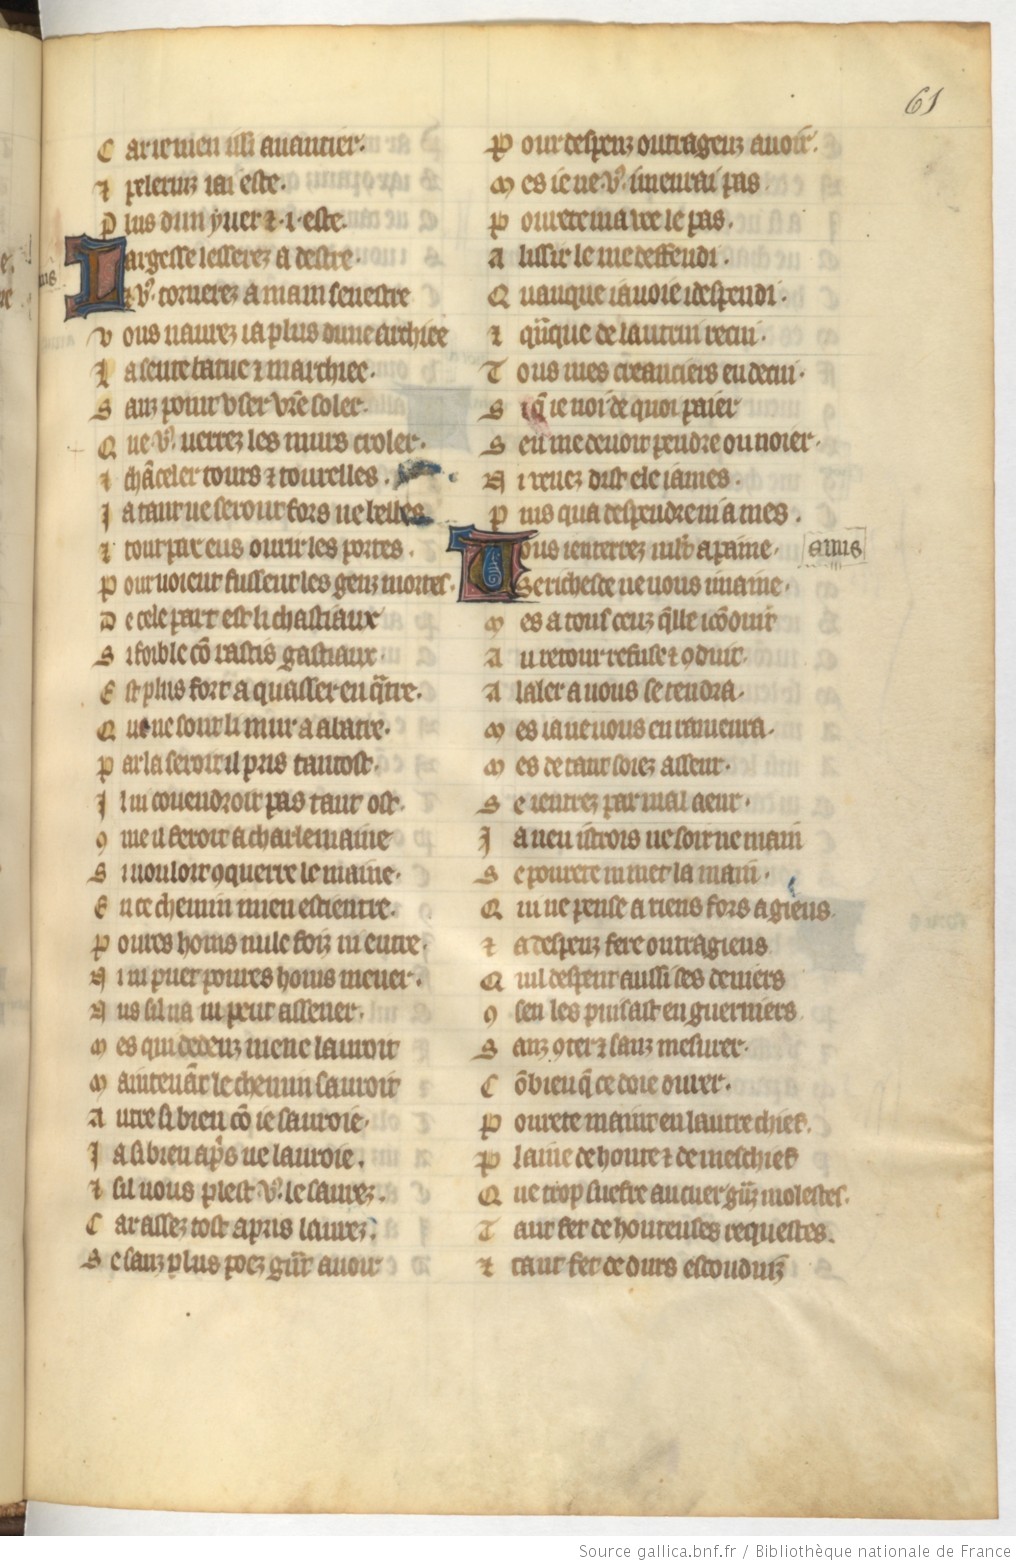 61
C ar ie men issi auantier·
⁊ pelerinz i ai este·
P lus dun yuer ⁊ ·i· este·
Largesse lesserez a destre·
⁊ v9 tornerez a main senestre
V ous naurez ia plus dune archiee
L a sente batue ⁊ marchiee·
S anz point vser vr̃e soler·
Q ue v9 verrez les murs croler·
⁊ chãceler tours ⁊ tourelles ·
J a tant ne seront fors ne belles
⁊ tout par eus ouurir les portes ·
P our noient fussent les genz mortes·
D e cele part est li chastiaux
S i foible cõ rastis gastiaux·
E st plus fort a quasser en q̃tre·
Q ue ne sont li mur a abatre·
P ar la seroit il pris tantost·
J l ni couendroit pas tant ost·
9 me il feroit a charlemaine
S i uouloit 9querre le maine·
E n ce chemin mien escientre·
P oures homs nule foiz ni entre·
N i ni puet poures homs mener·
N us si la ni peut assener·
M es qui dedenz mene lauroit
M aintenãt le chemin sauroit
A utre si bien cõ ie sauroie·
J a si bien ap̃s ne lauroie·
⁊ sil uous plest v9 le saurez·
C ar assez tost apris laurez·
S e sanz plus poez gñt auoir
P our despenz outrageuz auoir·
M es ie ne v9 i menrai pas
P ourete ma vee le pas·
A lissir le me deffendi·
Q uanque iauoie i despendi·
⁊ q̃nque de lautrui recui·
T ous mes creanciers en decui·
S i q̃ ie noi de quoi paier
S en me deuoit pendre ou noier·
N i venez dist ele iames·
P uis qua despendre ni a mes ·
Uous i enterrez a paine· amis
Se richesce ne uous i maine·
M es a touf ceuz q̃lle i cõduit
A u retour refuse ⁊ 9duit·
A laler a uous se tendra·
M es ia ne uous en ramenra·
M es de tant soiez asseur·
S e i entrez par mal aeur·
J a nen istrois ne soir ne main
S e pourete ni met la main·
Q ui ne pense a riens fors a giens
⁊ a despenz fere outragieus
Q uil despent aussi ses deniers
9 sen les puisast en guerniers
S anz 9ter ⁊ sanz mesurer·
C õbien q̃ ce doie durer·
P ourete maint en lautre chief·
P laine de honte ⁊ de meschief
Q ue trop suefre au cuer molestes·
T ant fet de honteuses requestes·
⁊ tant fet de durs escondiuz
Source gallica.bnf.fr / Bibliothèque nationale de France